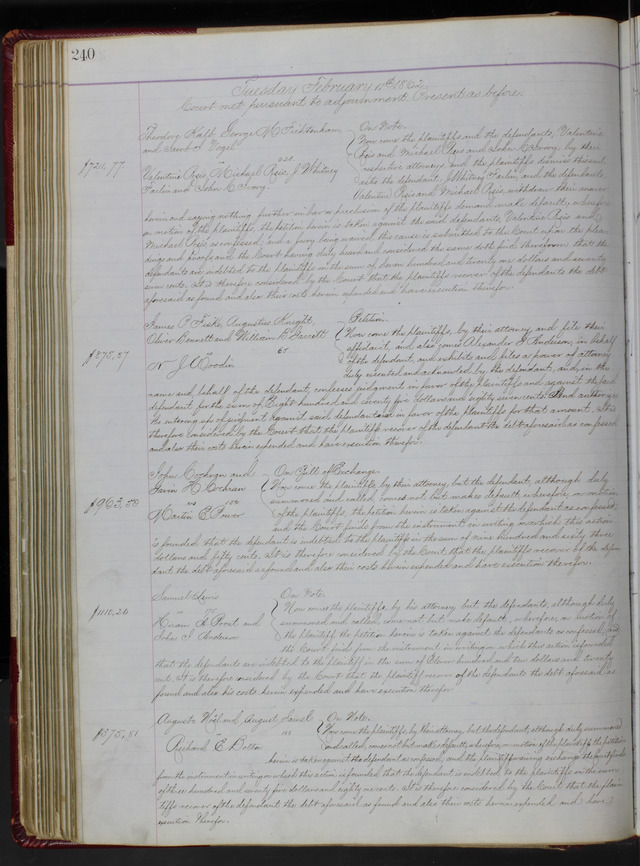 240
Tuesday February 11th 1862
Court met pursuant to adjournment Present as before.
Theodore Kalb, George M Fichtenham On Note.
and Jacob S Vogel Now come the plaintiffs and the defendants, Valentine
vs Reis and Michael Reis and John C Ivory, by their
$721,77 Valentine Reis, Michael Reis, J Whitney respective attorneys and the plaintiffs dismiss this suit
Farlin and John C Ivory. as to the defendants, J Whitney Farlin, and the defendants,
Valentine Reis and Michael Reis, withdraw their answer
herein and saying nothing further in bar or preclusion of the plaintiffs demand make default, wherefore
on motion of the plaintiffs, the petition herein is taken against the said defendants, Valentine Reis and
Michael Reis as confessed, and a jury being waived this cause is submitted to the Court upon the plea-
dings and proofs and the Court having duly heard and considered the same doth find therefrom that the
defendants are indebted to the plaintiffs in the sum of seven hundred and twenty one dollars and seventy
seven cents. It is therefore considered by the Court that the plaintiffs recover of the defendants the debt
aforesaid as found and also their costs herein expended and have execution therefor.
James P Fiske, Augustus Knight, Petition.
Oliver Bennett and William B Garrett Now come the plaintiffs, by their attorney and file their
vs affidavit, and also comes Alexander J P Anderson, in behalf
$875,87 W. J. Woodin of the defendant, and exhibits and files a power of attorney
duly executed and acknowledged by the defendant, and in the
name and behalf of the defendant, confesses judgment in favor of the plaintiffs and against the said
defendant for the sum of Eight hundred and seventy five dollars and eighty seven cents. And authorizes
the entering up of judgment against said defendant and in favor of the plaintiffs for that amount. It is
therefore considered by the Court that the plaintiffs recover of the defendant the debt aforesaid as confessed
and also their costs herein expended and have execution therefor.
John Cochran and On Bill of Exchange
Irwin H Cochran Now come the plaintiffs by their attorney, but the defendant, although duly
$963,50 vs summoned and called, comes not but makes default, wherefore, on motion
Martin E Power of the plaintiffs, the petition herein is taken against the defendant as confessed,
and the Court finds from the instrument in writing on which this action
is founded that the defendant is indebted to the plaintiffs in the sum of nine hundred and sixty three
dollars and fifty cents. It is therefore considered by the Court that the plaintiffs recover of the defen-
dant the debt aforesaid as found and also their costs herein expended and have execution therefor.
Samuel Lewis On Note.
vs Now comes the plaintiff, by his attorney but the defendants, although duly
$1110,20 Hiram A Prout and summoned and called, come not but make default, wherefore, on motion of
John J Anderson the plaintiff, the petition herein is taken against the defendants as confessed, and
the Court finds from the instrument in writing on which this action is founded
that the defendants are indebted to the plaintiff in the sum of Eleven hundred and ten dollars and twenty
cents. It is therefore considered by the Court that the plaintiff recover of the defendants the debt aforesaid as
found and also his costs herein expended and have execution therefor
August and August On Note.
$375,81 vs Now come the plaintiffs, by their attorney, but the defendant, although duly summoned
Richard E Bolton and called, comes not but makes default, wherefore, on motion of the plaintiffs, the petition
herein is taken against the defendant as confessed, and the plaintiffs waiving exchange the Court finds
from the instrument in writing on which this action is founded that the defendant is indebted to the plaintiffs in the sum
of three hundred and seventy five dollars and eighty one cents. It is therefore considered by the Court that the plain-
tiffs recover of the defendant the debt aforesaid as found and also their costs herein expended and have
execution therefor.